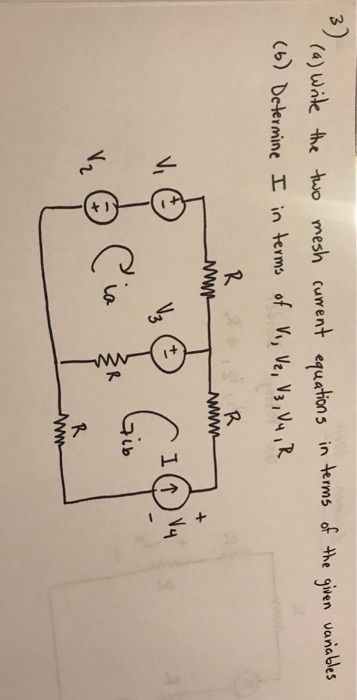 3)
(a) Write the two mesh current equations in terms of the given variables
(b) Determine I in terms of V1, V2, V3, V4, R
R R
V1 + - V3 + - I + V4 -
V2 - + ia R ib
R